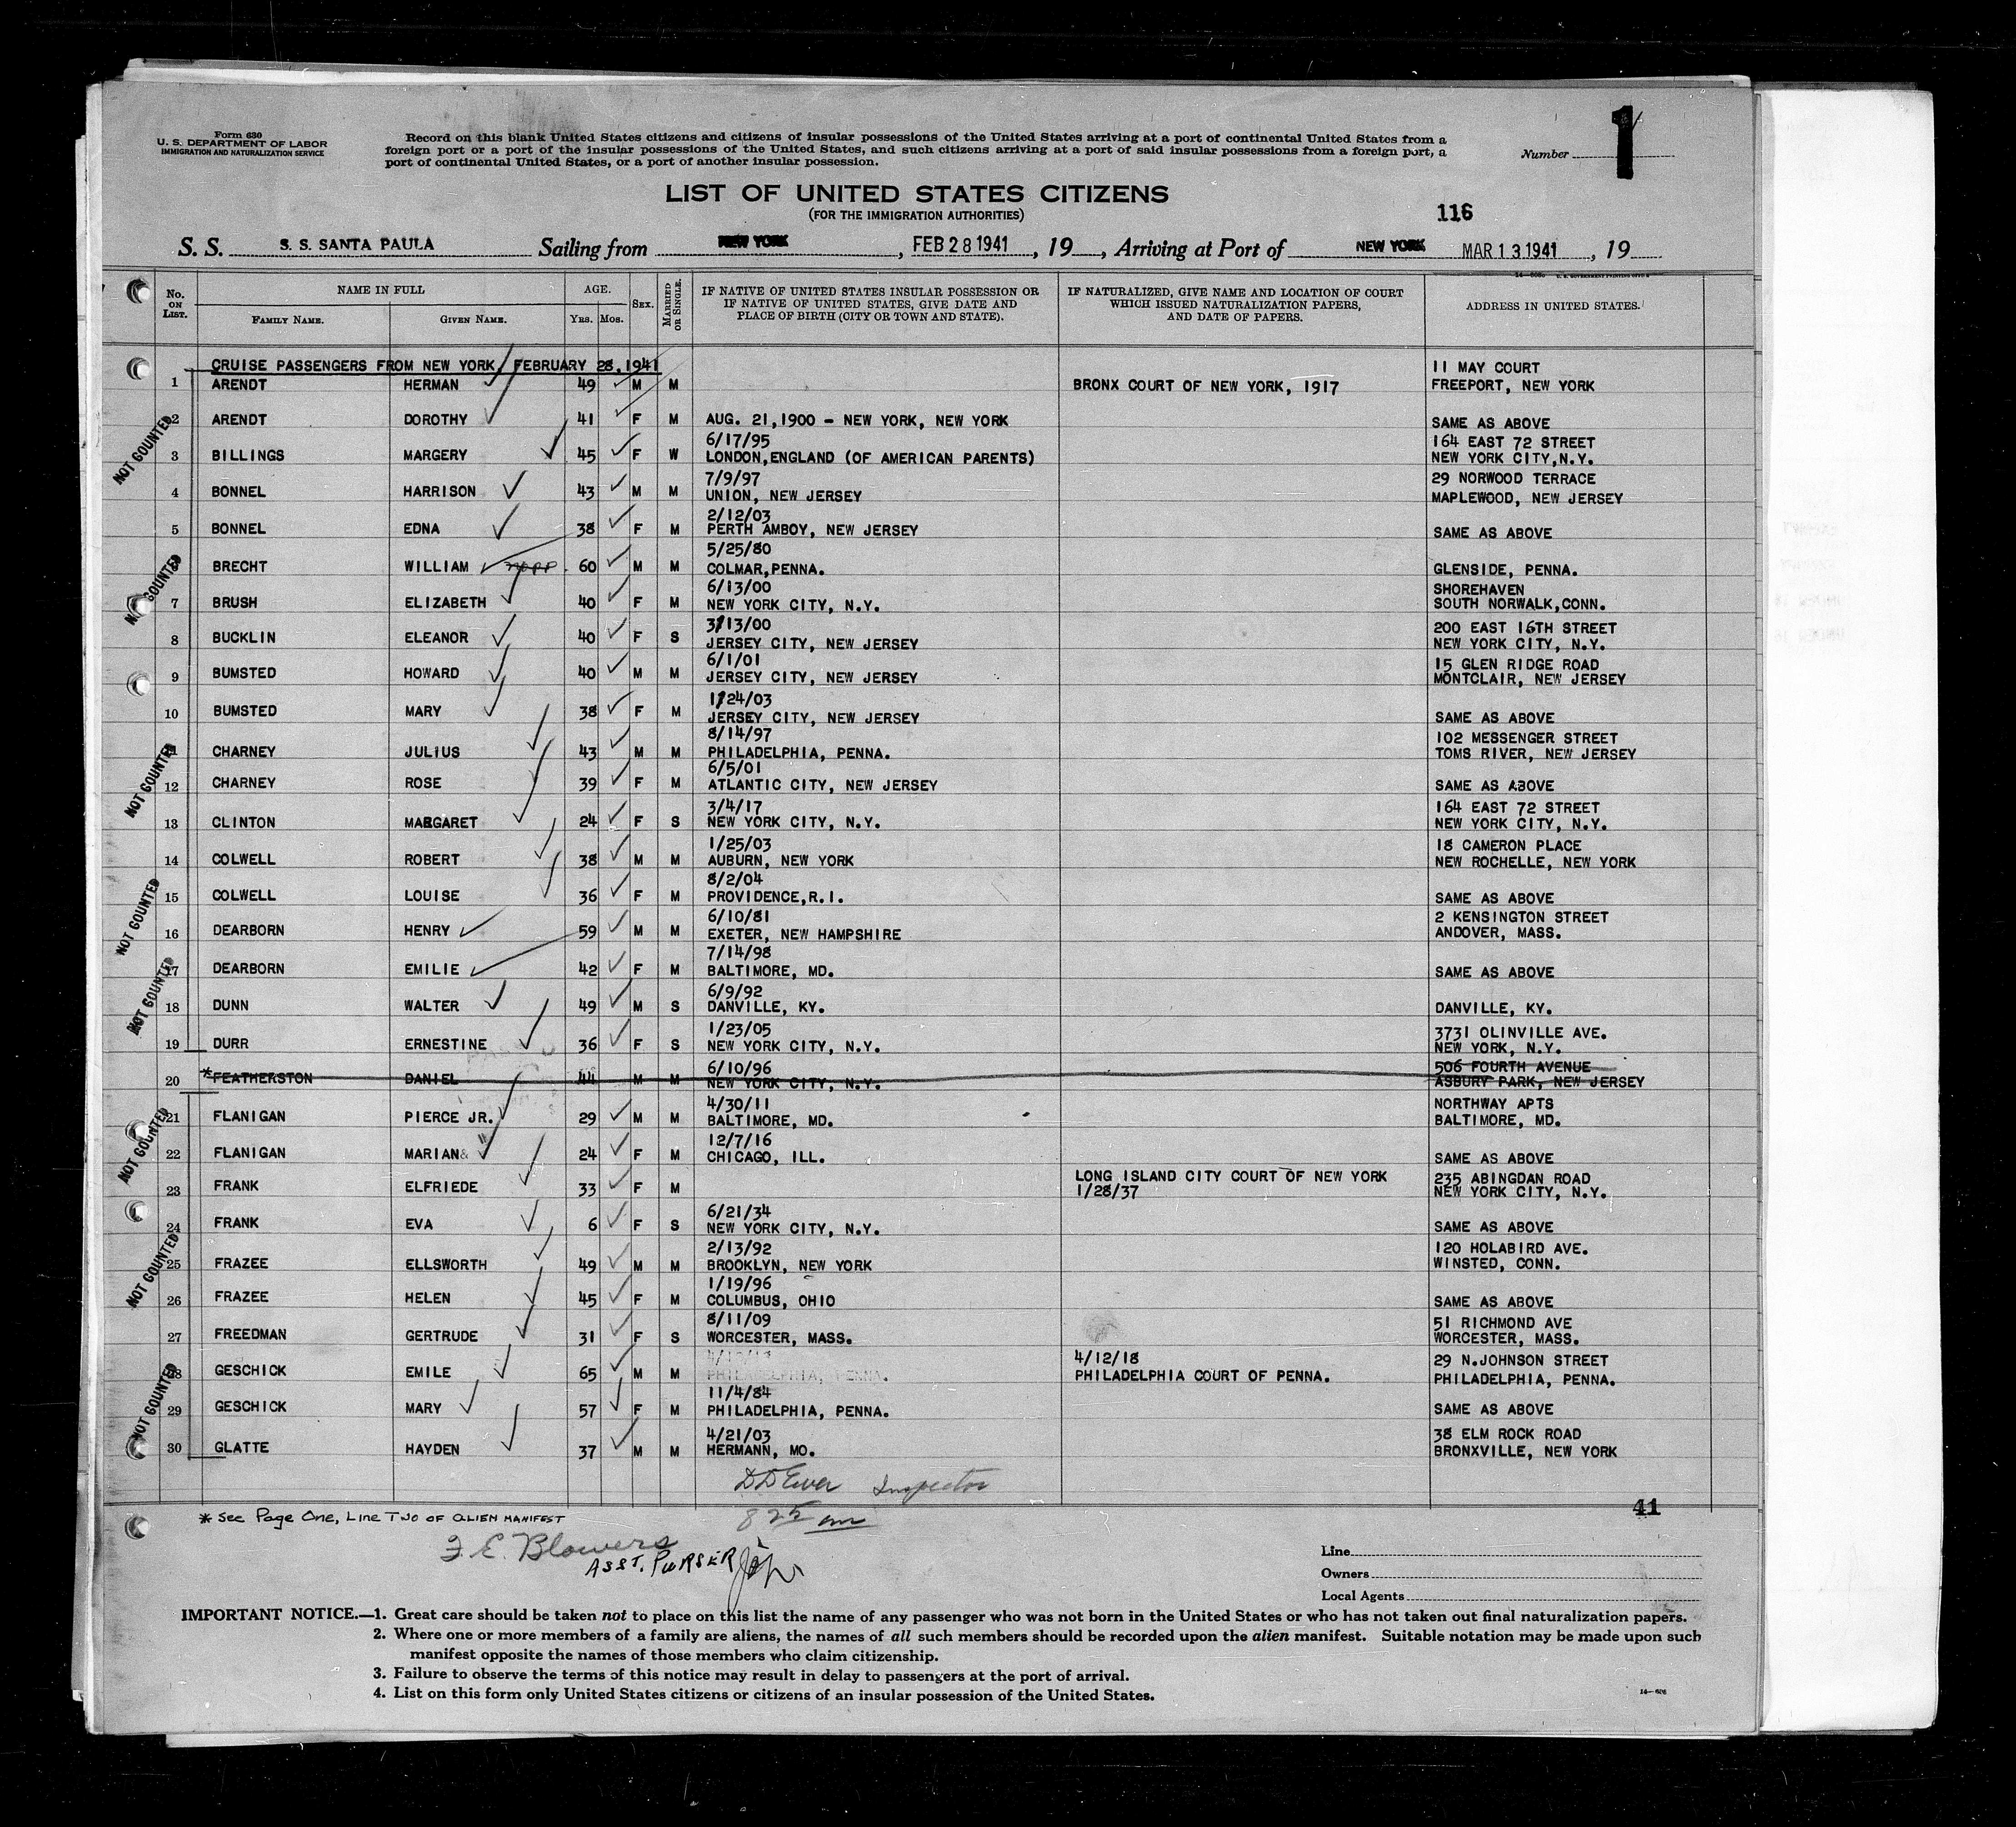 Form 630
U. S. DEPARTMENT OF LABOR
IMMIGRATION AND NATURALIZATION SERVICE
Record on this blank United States citizens and citizens of insular possessions of the United States arriving at a port of continental United States from a
foreign port or a port of the insular possessions of the United States, and such citizens arriving at a port of said insular possessions from a foreign port, a
port of continental United States, or a port of another insular possession.
Number 1
LIST OF UNITED STATES CITIZENS
(FOR THE IMMIGRATION AUTHORITIES)
116
S. S. S. S. SANTA PAULA Sailing from NEW YORK, FEB 28 1941, 19, Arriving at Port of NEW YORK MAR 13 1941, 19
No. ON LIST. NAME IN FULL FAMILY NAME. GIVEN NAME. AGE. YRS. MOS. SEX. MARRIED OR SINGLE. IF NATIVE OF UNITED STATES INSULAR POSSESSION OR IF NATIVE OF UNITED STATES, GIVE DATE AND PLACE OF BIRTH (CITY OR TOWN AND STATE). IF NATURALIZED, GIVE NAME AND LOCATION OF COURT WHICH ISSUED NATURALIZATION PAPERS, AND DATE OF PAPERS. ADDRESS IN UNITED STATES.
CRUISE PASSENGERS FROM NEW YORK, FEBRUARY 28, 1941 11 MAY COURT
1 ARENDT HERMAN 49 M M BRONX COURT OF NEW YORK, 1917 FREEPORT, NEW YORK
2 ARENDT DOROTHY 41 F M AUG. 21,1900 - NEW YORK, NEW YORK SAME AS ABOVE
NOT COUNTED
6/17/95 164 EAST 72 STREET
3 BILLINGS MARGERY 45 F W LONDON,ENGLAND (OF AMERICAN PARENTS) NEW YORK CITY,N.Y.
7/9/97 29 NORWOOD TERRACE
4 BONNEL HARRISON 43 M M UNION, NEW JERSEY MAPLEWOOD, NEW JERSEY
2/12/03
5 BONNEL EDNA 38 F M PERTH AMBOY, NEW JERSEY SAME AS ABOVE
5/25/80
BRECHT WILLIAM 60 M M COLMAR,PENNA. GLENSIDE, PENNA.
NOT COUNTED
6/13/00 SHOREHAVEN
7 BRUSH ELIZABETH 40 F M NEW YORK CITY, N.Y. SOUTH NORWALK,CONN.
3/13/00 200 EAST 16TH STREET
8 BUCKLIN ELEANOR 40 F S JERSEY CITY, NEW JERSEY NEW YORK CITY, N.Y.
6/1/01 15 GLEN RIDGE ROAD
9 BUMSTED HOWARD 40 M M JERSEY CITY, NEW JERSEY MONTCLAIR, NEW JERSEY
1/24/03
10 BUMSTED MARY 38 F M JERSEY CITY, NEW JERSEY SAME AS ABOVE
8/14/97 102 MESSENGER STREET
11 CHARNEY JULIUS 43 M M PHILADELPHIA, PENNA. TOMS RIVER, NEW JERSEY
NOT COUNTED
6/5/01
12 CHARNEY ROSE 39 F M ATLANTIC CITY, NEW JERSEY SAME AS ABOVE
3/4/17 164 EAST 72 STREET
13 CLINTON MARGARET 24 F S NEW YORK CITY, N.Y. NEW YORK CITY, N.Y.
1/25/03 18 CAMERON PLACE
14 COLWELL ROBERT 38 M M AUBURN, NEW YORK NEW ROCHELLE, NEW YORK
8/2/04
15 COLWELL LOUISE 36 F M PROVIDENCE,R.I. SAME AS ABOVE
NOT COUNTED
6/10/81 2 KENSINGTON STREET
16 DEARBORN HENRY 59 M M EXETER, NEW HAMPSHIRE ANDOVER, MASS.
7/14/98
17 DEARBORN EMILIE 42 F M BALTIMORE, MD. SAME AS ABOVE
NOT COUNTED
6/9/92
18 DUNN WALTER 49 M S DANVILLE, KY. DANVILLE, KY.
1/23/05 3731 OLINVILLE AVE.
19 DURR ERNESTINE 36 F S NEW YORK CITY, N.Y. NEW YORK, N.Y.
6/10/96 506 FOURTH AVENUE
20 *FEATHERSTON DANIEL 44 M M NEW YORK CITY, N.Y. ASBURY PARK, NEW JERSEY
4/30/11 NORTHWAY APTS
21 FLANIGAN PIERCE JR. 29 M M BALTIMORE, MD. BALTIMORE, MD.
NOT COUNTED
12/7/16
22 FLANIGAN MARIAN 24 F M CHICAGO, ILL. SAME AS ABOVE
LONG ISLAND CITY COURT OF NEW YORK 235 ABINGDAN ROAD
23 FRANK ELFRIEDE 33 F M 1/28/37 NEW YORK CITY, N.Y.
6/21/34
24 FRANK EVA 6 F S NEW YORK CITY, N.Y. SAME AS ABOVE
2/13/92 120 HOLABIRD AVE.
25 FRAZEE ELLSWORTH 49 M M BROOKLYN, NEW YORK WINSTED, CONN.
NOT COUNTED
1/19/96
26 FRAZEE HELEN 45 F M COLUMBUS, OHIO SAME AS ABOVE
8/11/09 51 RICHMOND AVE
27 FREEDMAN GERTRUDE 31 F S WORCESTER, MASS. WORCESTER, MASS.
4/12/18 4/12/18 29 N.JOHNSON STREET
28 GESCHICK EMILE 65 M M PHILADELPHIA, PENNA. PHILADELPHIA COURT OF PENNA. PHILADELPHIA, PENNA.
NOT COUNTED
11/4/84
29 GESCHICK MARY 57 F M PHILADELPHIA, PENNA. SAME AS ABOVE
4/21/03 38 ELM ROCK ROAD
30 GLATTE HAYDEN 37 M M HERMANN, MO. BRONXVILLE, NEW YORK
Inspector
41
* See Page One, Line Two of Alien Manifest
8 25 am
F. E. Blowers
Asst. Purser
Line
Owners
Local Agents
IMPORTANT NOTICE.—1. Great care should be taken not to place on this list the name of any passenger who was not born in the United States or who has not taken out final naturalization papers.
2. Where one or more members of a family are aliens, the names of all such members should be recorded upon the alien manifest. Suitable notation may be made upon such
manifest opposite the names of those members who claim citizenship.
3. Failure to observe the terms of this notice may result in delay to passengers at the port of arrival.
4. List on this form only United States citizens or citizens of an insular possession of the United States.